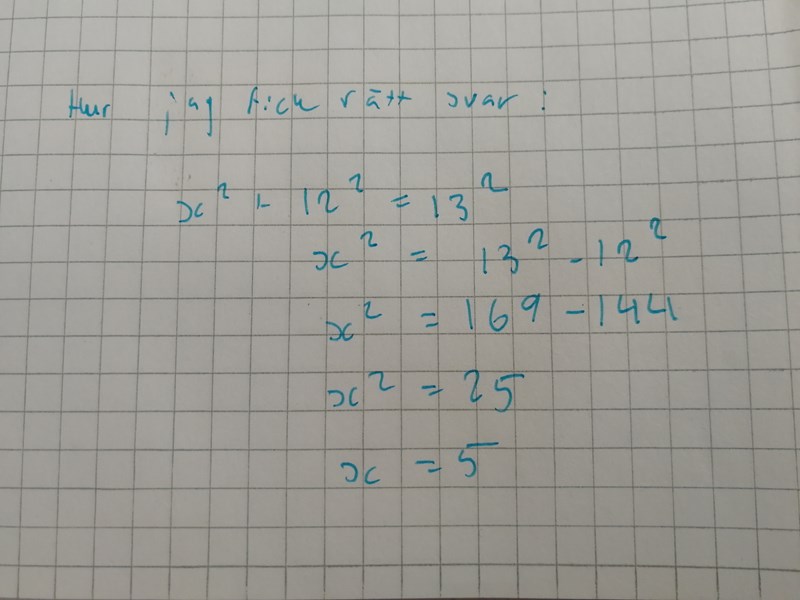 Hur jag fick rätt svar:
x² + 12² = 13²
x² = 13² - 12²
x² = 169 - 144
x² = 25
x = 5